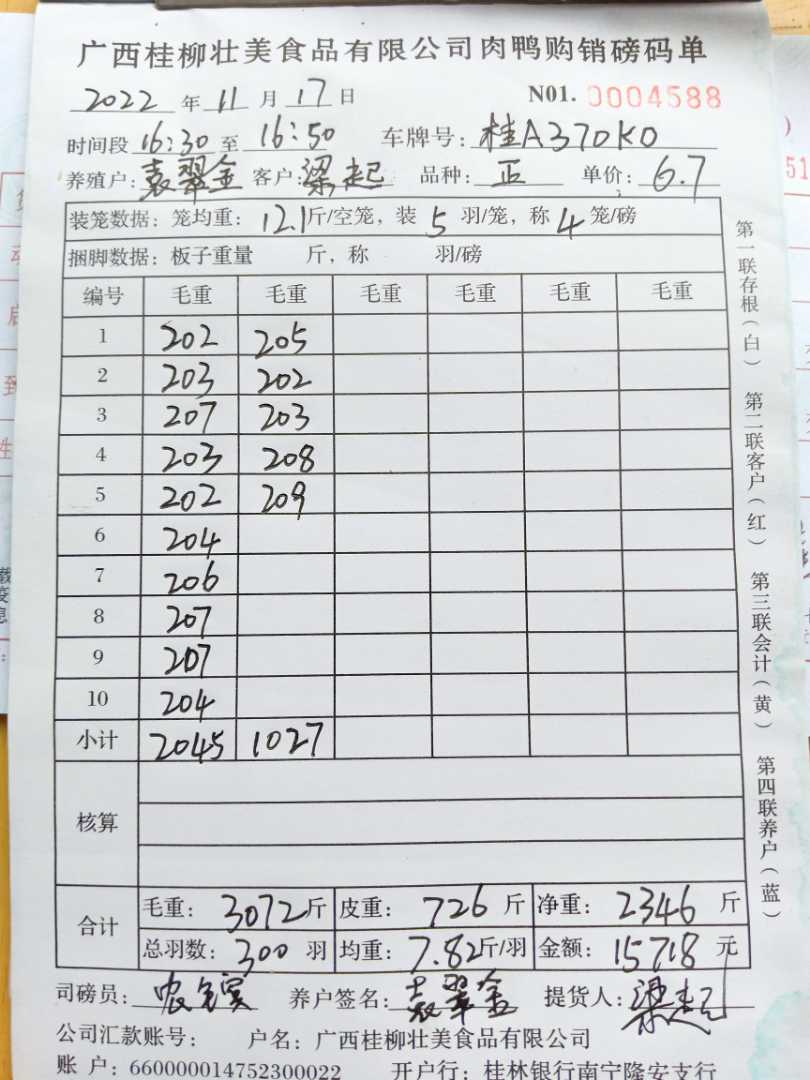 广西桂柳壮美食品有限公司肉鸭购销磅码单
2022 年 11 月 17 日 N01. 0004588
时间段 16:30 至 16:50 车牌号: 桂A370K0
养殖户: 袁翠金 客户: 梁起 品种: 正 单价: 6.7
装笼数据: 笼均重: 12.1斤/空笼, 装 5 羽/笼, 称 4 笼/磅
捆脚数据: 板子重量 斤, 称 羽/磅
编号 毛重 毛重 毛重 毛重 毛重 毛重
1 202 205
2 203 202
3 207 203
4 203 208
5 202 209
6 204
7 206
8 207
9 207
10 204
小计 2045 1027
核算
合计
毛重: 3072斤 皮重: 726 斤 净重: 2346 斤
总羽数: 300 羽 均重: 7.82斤/羽 金额: 15718 元
司磅员: 养户签名: 袁翠金 提货人: 梁起
公司汇款账号: 户名: 广西桂柳壮美食品有限公司
账 户: 660000014752300022 开户行: 桂林银行南宁隆安支行
第一联存根(白) 第二联客户(红) 第三联会计(黄) 第四联养户(蓝)